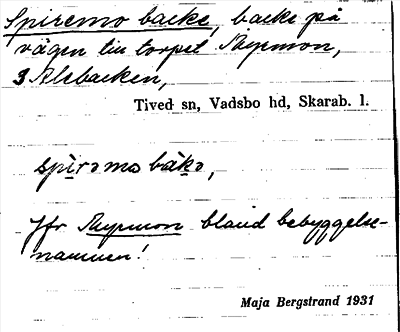 Spiremo backe, backe på
vägen till torpet Nyemon,
3 Alebacken,
Tived sn, Vadsbo hd, Skarab. l.
spirəmo bakə,
Jfr Nyemon bland bebyggelse-
namnen!
Maja Bergstrand 1931